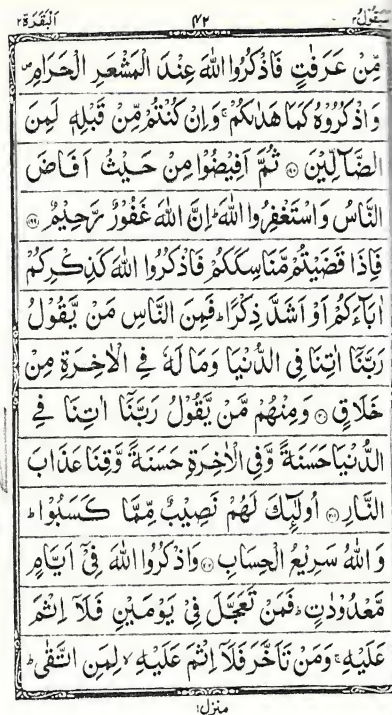 سيقول ٢ ٤٢ البقرة ٢
مِّنْ عَرَفٰتٍ فَاذْكُرُوا اللّٰهَ عِنْدَ الْمَشْعَرِ الْحَرَامِ ۪
وَاذْكُرُوْهُ كَمَا هَدٰىكُمْ ۚ وَاِنْ كُنْتُمْ مِّنْ قَبْلِهٖ لَمِنَ
الضَّآلِّيْنَ ۝١٩٨ ثُمَّ اَفِيْضُوْا مِنْ حَيْثُ اَفَاضَ
النَّاسُ وَاسْتَغْفِرُوا اللّٰهَ ؕ اِنَّ اللّٰهَ غَفُوْرٌ رَّحِيْمٌ ۝١٩٩
فَاِذَا قَضَيْتُمْ مَّنَاسِكَكُمْ فَاذْكُرُوا اللّٰهَ كَذِكْرِكُمْ
اٰبَآءَكُمْ اَوْ اَشَدَّ ذِكْرًا ؕ فَمِنَ النَّاسِ مَنْ يَّقُوْلُ
رَبَّنَآ اٰتِنَا فِى الدُّنْيَا وَمَا لَهٗ فِى الْاٰخِرَةِ مِنْ
خَلَاقٍ ۝٢٠٠ وَمِنْهُمْ مَّنْ يَّقُوْلُ رَبَّنَآ اٰتِنَا فِى
الدُّنْيَا حَسَنَةً وَّفِى الْاٰخِرَةِ حَسَنَةً وَّقِنَا عَذَابَ
النَّارِ ۝٢٠١ اُولٰٓئِكَ لَهُمْ نَصِيْبٌ مِّمَّا كَسَبُوْا ؕ
وَاللّٰهُ سَرِيْعُ الْحِسَابِ ۝٢٠٢ وَاذْكُرُوا اللّٰهَ فِىْٓ اَيَّامٍ
مَّعْدُوْدٰتٍ ؕ فَمَنْ تَعَجَّلَ فِىْ يَوْمَيْنِ فَلَآ اِثْمَ
عَلَيْهِ ۚ وَمَنْ تَاَخَّرَ فَلَآ اِثْمَ عَلَيْهِ ۙ لِمَنِ اتَّقٰى ؕ
منزل ١